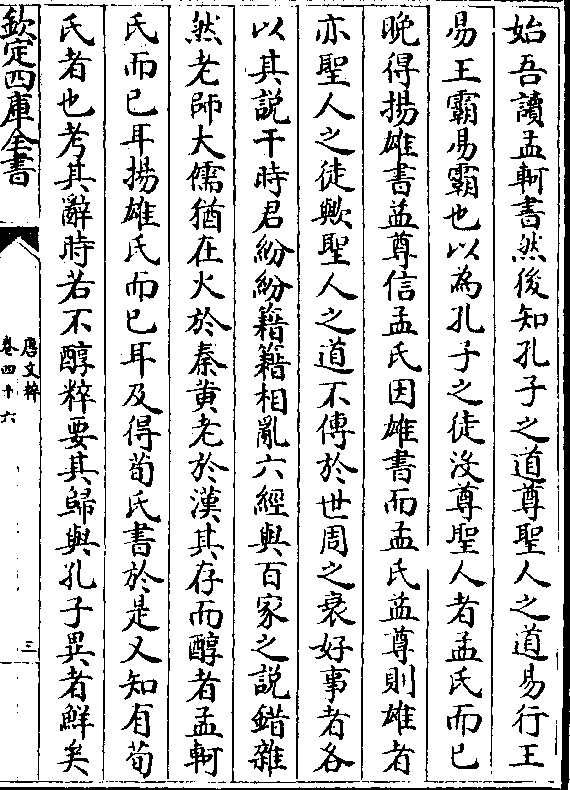 始吾讀孟軻書然後知孔子之道尊聖人之道易行王
易王霸易霸也以為孔子之徒没尊聖人者孟氏而已
晩得揚雄書益尊信孟氏因雄書而孟氏益尊則雄者
亦聖人之徒歟聖人之道不傳於世周之衰好事者各
以其說干時君紛紛籍籍相亂六經與百家之説錯雜
然老師大儒猶在火於秦黄老於漢其存而醇者孟軻
氏而已耳揚雄氏而已耳及得荀氏書於是又知有荀
氏者也考其辭時若不醇粹要其歸與孔子異者鮮矣
欽定四庫全書
唐文粹
卷四十六
三